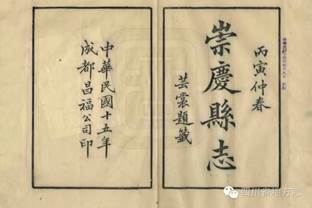 丙寅仲春
崇慶縣志
芸裳題籤
中華民國十五年
成都昌福公司印